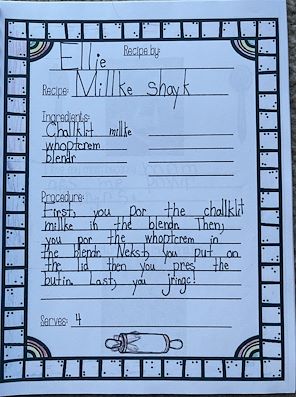 Recipe by:
Ellie
Recipe: Millke Shayk
Ingredients:
Challklit millke
whopcrem
blendr
Procedure:
First, you por the challklit
millke in the blendr. Then,
you por the whopcrem in
the blendr. Nekst, you put on
the lid then you pres the
butin. Last, you jringc!
Serves: 4